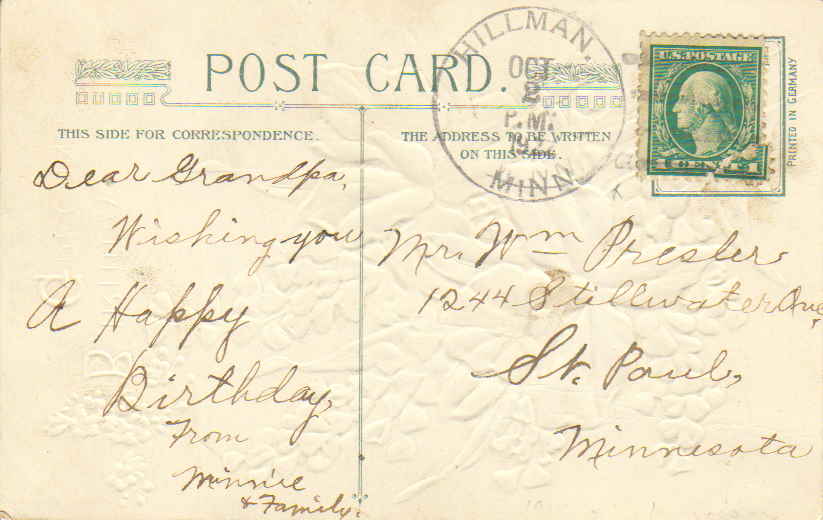 POST CARD.
THIS SIDE FOR CORRESPONDENCE.
THE ADDRESS TO BE WRITTEN
ON THIS SIDE.
HILLMAN.
OCT
2
P.M.
MINN.
U.S. POSTAGE
PRINTED IN GERMANY
Dear Grandpa,
Wishing you
A Happy
Birthday,
From
Minnie
& Family.
Mr. Wm Presler
1244 Stillwater Ave,
St. Paul,
Minnesota